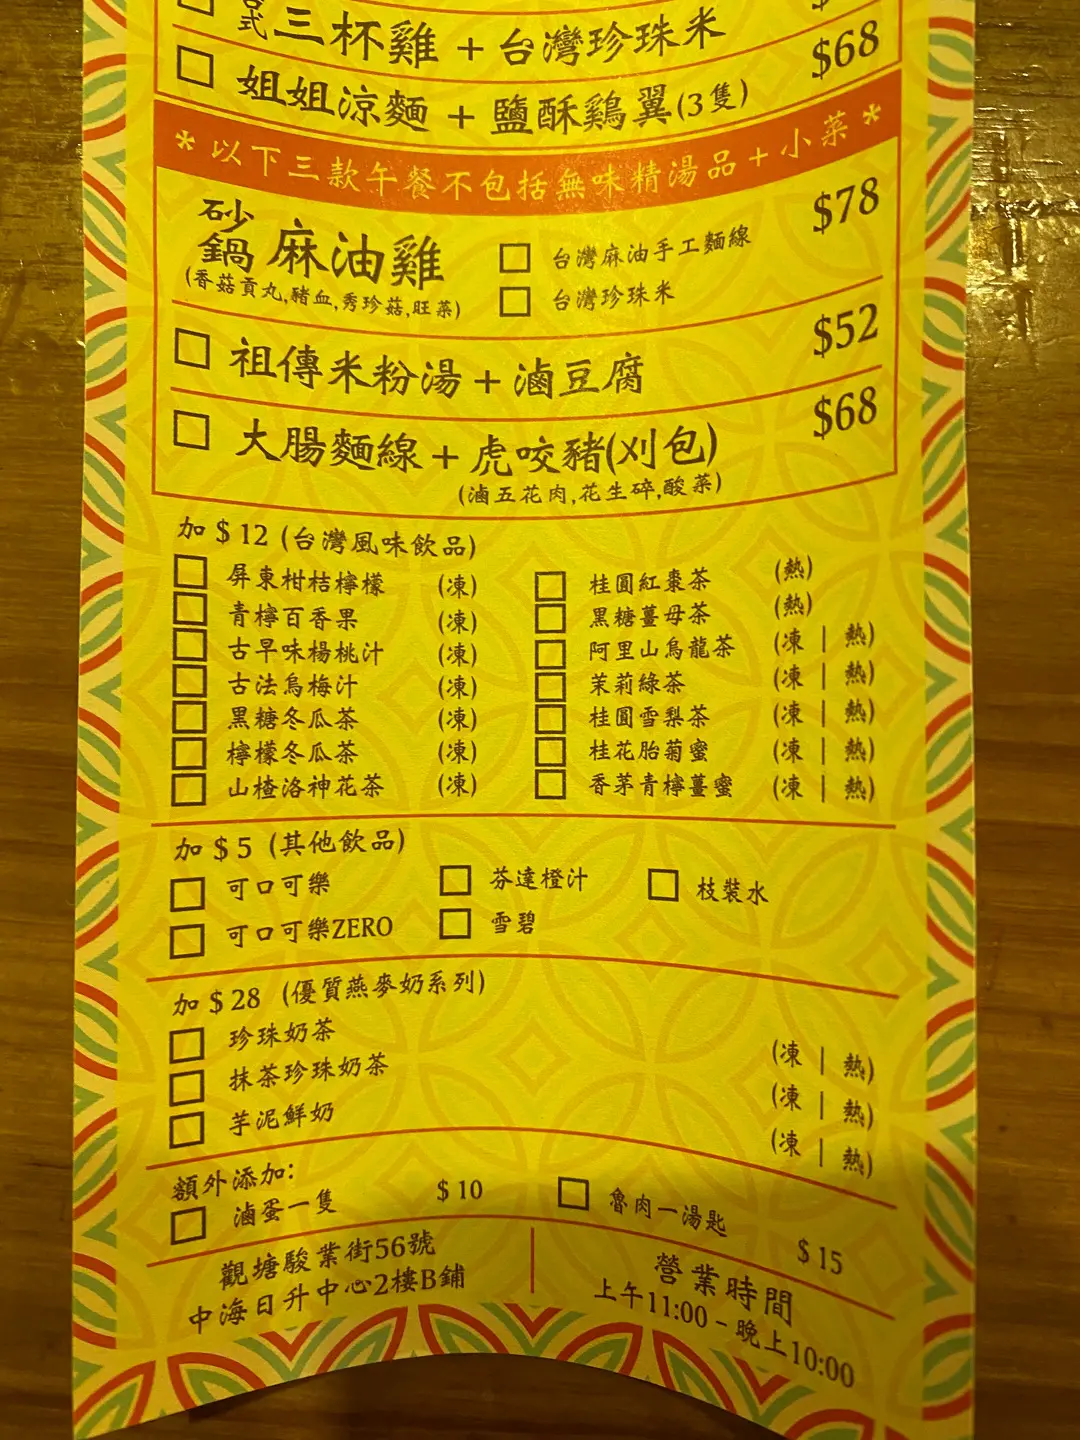 式三杯雞 + 台灣珍珠米
姐姐涼麵 + 鹽酥鷄翼(3隻) $68
*以下三款午餐不包括無味精湯品+小菜*
砂鍋麻油雞 $78
(香菇貢丸,豬血,秀珍菇,旺菜)
台灣麻油手工麵線
台灣珍珠米
祖傳米粉湯 + 滷豆腐 $52
大腸麵線 + 虎咬豬(刈包) $68
(滷五花肉,花生碎,酸菜)
加 $12 (台灣風味飲品)
屏東柑桔檸檬 (凍) 桂圓紅棗茶 (熱)
青檸百香果 (凍) 黑糖薑母茶 (熱)
古早味楊桃汁 (凍) 阿里山烏龍茶 (凍 | 熱)
古法烏梅汁 (凍) 茉莉綠茶 (凍 | 熱)
黑糖冬瓜茶 (凍) 桂圓雪梨茶 (凍 | 熱)
檸檬冬瓜茶 (凍) 桂花胎菊蜜 (凍 | 熱)
山楂洛神花茶 (凍) 香茅青檸薑蜜 (凍 | 熱)
加 $5 (其他飲品)
可口可樂 芬達橙汁 枝裝水
可口可樂ZERO 雪碧
加 $28 (優質燕麥奶系列)
珍珠奶茶 (凍 | 熱)
抹茶珍珠奶茶 (凍 | 熱)
芋泥鮮奶 (凍 | 熱)
額外添加:
滷蛋一隻 $10 魯肉一湯匙 $15
觀塘駿業街56號
中海日升中心2樓B鋪
營業時間
上午11:00 - 晚上10:00